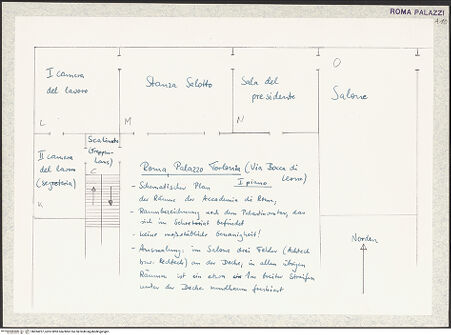 ROMA PALAZZI
A-10
I camera
del lavoro
L
Stanza Salotto
M
Sala del
presidente
N
O
Salone
II camera
del lavoro
(segreteria)
K
Scalinata
(Treppen-
haus)
C
Roma Palazzo Torlonia (Via Bocca di
Leone)
I piano
- Schematischer Plan
der Räume der Accademia di Roma,
- Raumbezeichnung nach dem
sich im Sekretariat befindet
- keine maßstäbliche Genauigkeit!
- Ausmalung: im Salone drei Felder (Achteck
bzw. Rechteck) an der Decke; in allen übrigen
Räumen ist ein etwa 1m breiter Streifen
unter der Decke rundherum freskiert
Norden